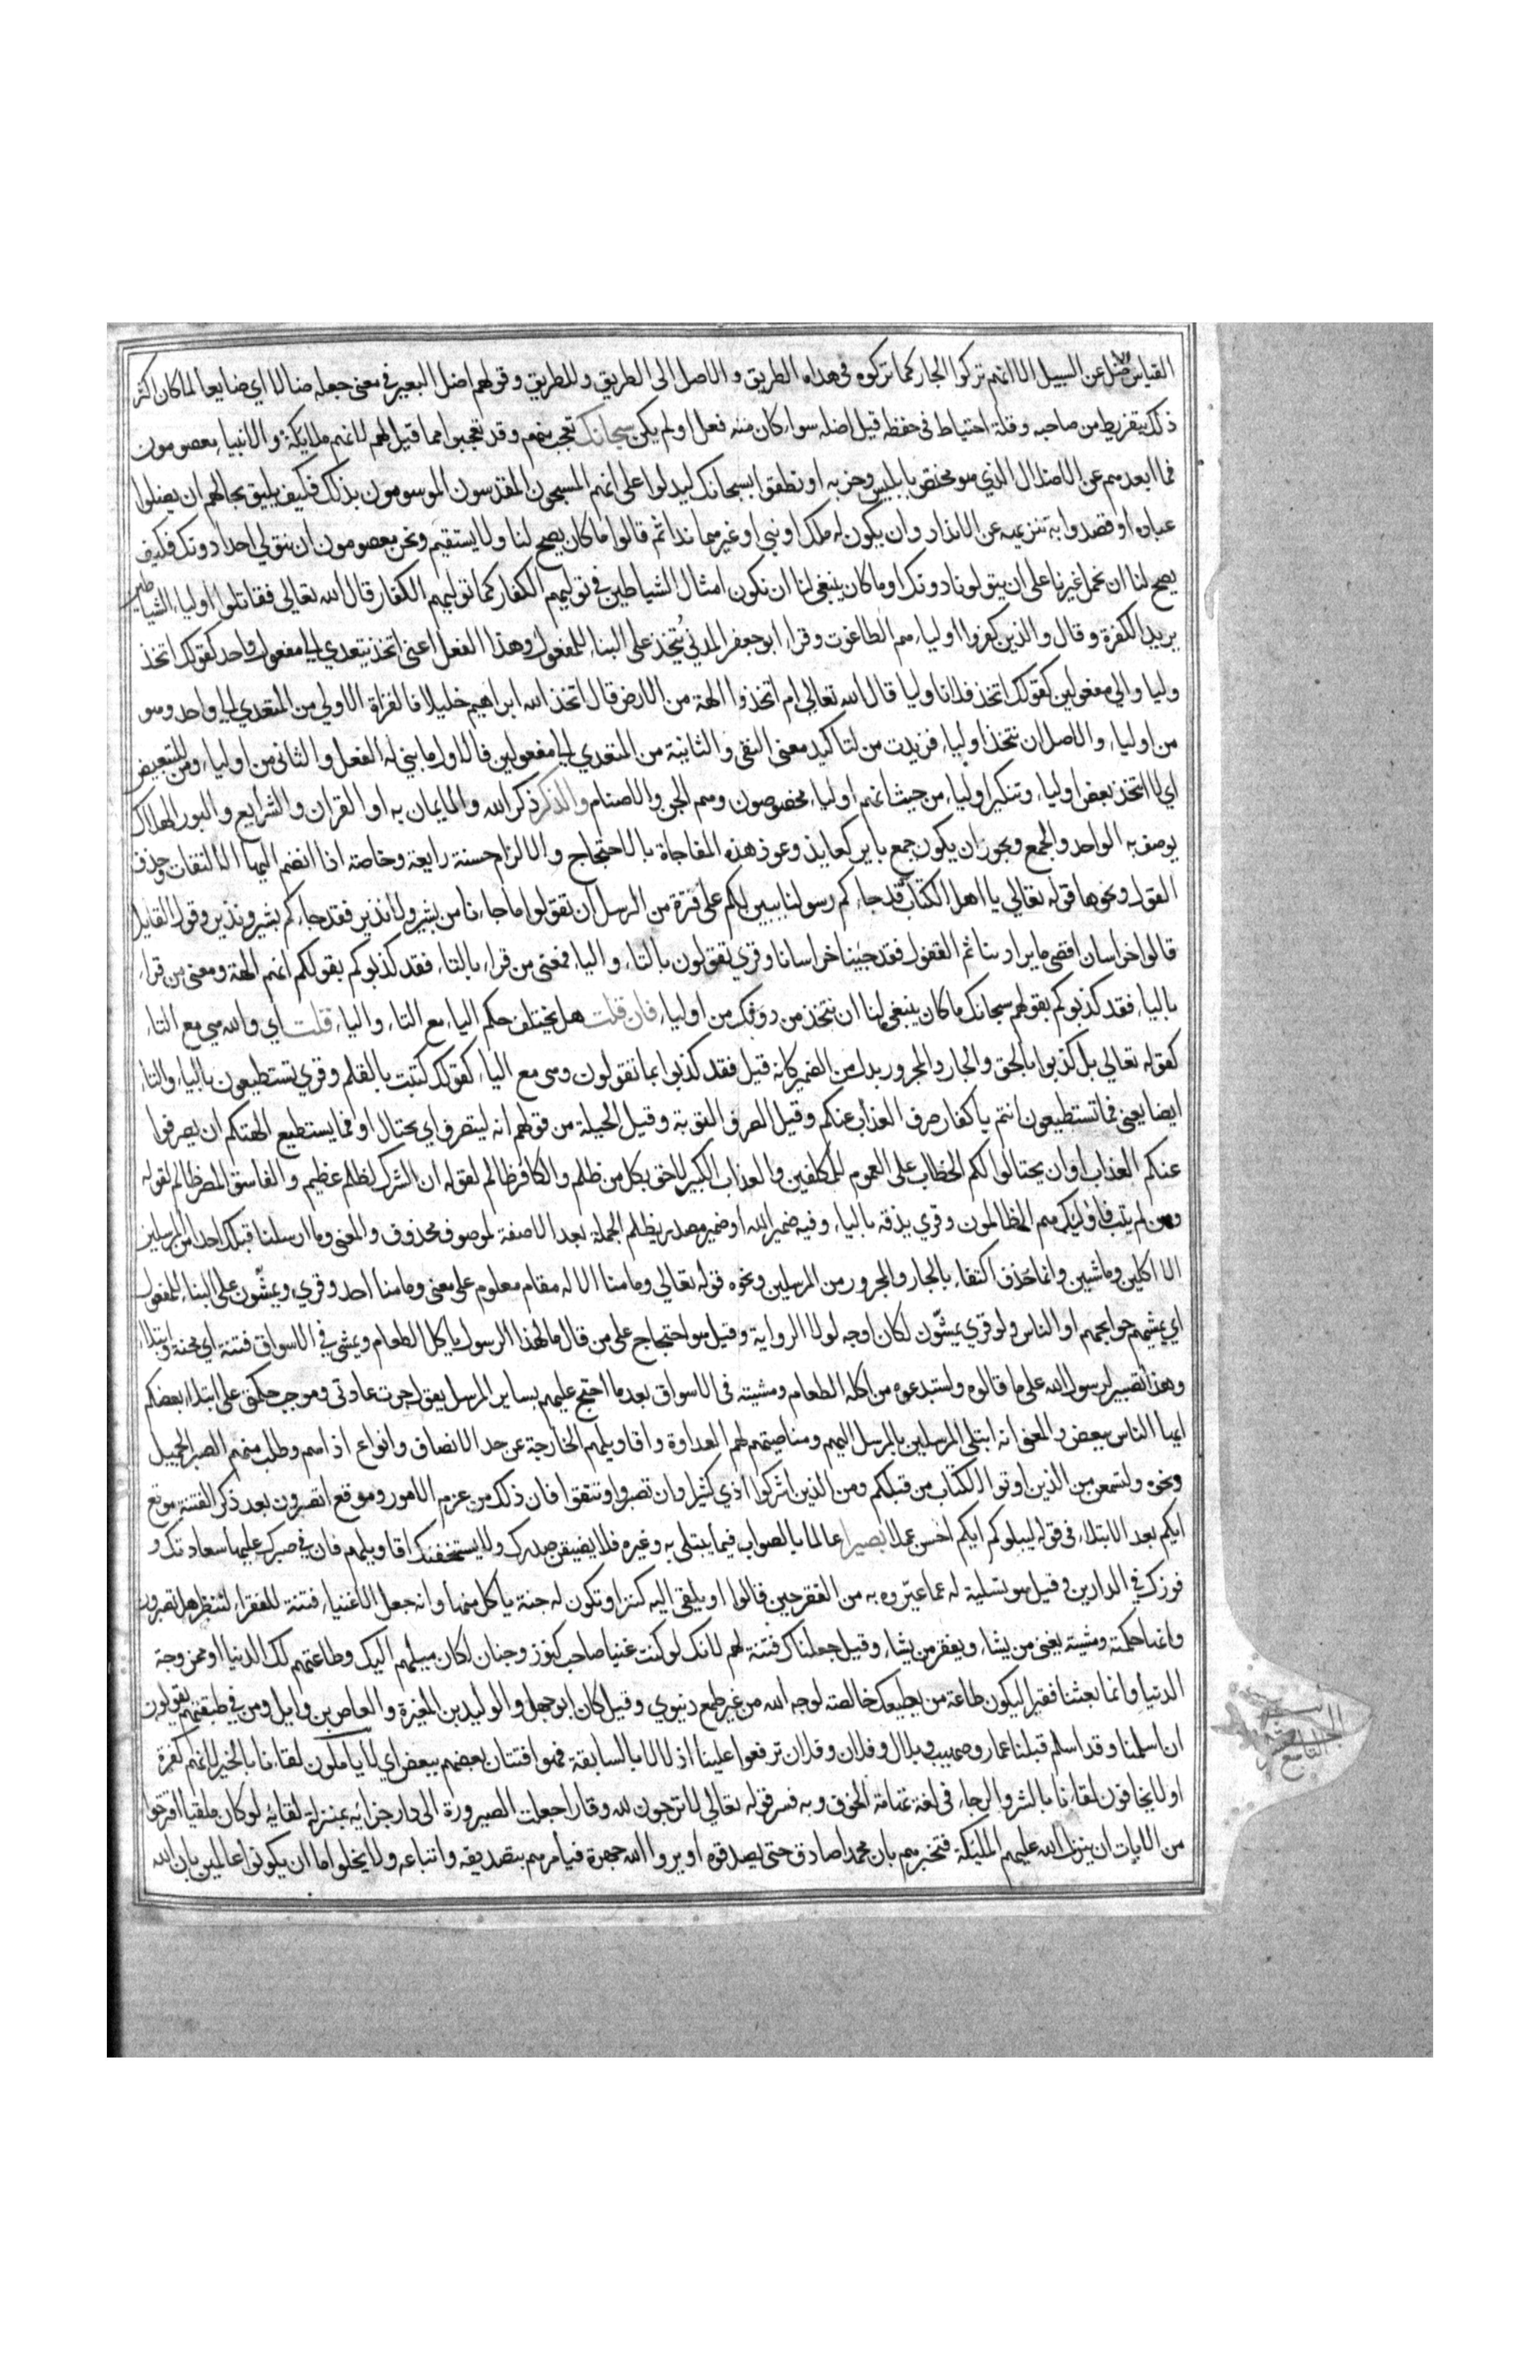 القياس ضل عن السبيل الا انهم تركوا الجار كما تركوه في هداه الطريق والاصل الى الطريق وللطريق وقولهم اضل البعير في معنى جعله ضالا اي ضايعا لما كان اكثر
ذلك بتفريط من صاحبه وقلة احتياط في حفظه قيل اضله سواء كان منه فعل او لم يكن سبحانك تعجب منهم وقد تعجبوا مما قيل لهم لانهم ملايكة والانبياء معصومون
فما ابعدهم عن الاضلال الذي هو مختص بابليس وحزبه او نطقوا بسبحانك ليدلوا على انهم المسبحون المقدسون الموسومون بذلك فكيف يليق بحالهم ان يضلوا
عباده او قصدوا به تنزيهه عن الانداد وان يكون له ملك او نبي او غيرهما ندا ثم قالوا ما كان يصح لنا ولا يستقيم ونحن معصومون ان نتولى احدا دونك فكيف
يصح لنا ان نحمل غيرنا على ان يتولونا دونك او ما كان ينبغي لنا ان نكون امثال الشياطين في توليهم الكفار كما توليهم الكفار قال الله تعالى فقاتلوا اولياء الشياطين
يريد الكفرة وقال والذين كفروا اولياءهم الطاغوت وقراء ابو جعفر المدني نُتخذ على البناء للمفعول وهذا الفعل اعني اتخذ يتعدى الى مفعول واحد كقولك اتخذ
وليا والى مفعولين كقولك اتخذ فلانا وليا قال الله تعالى ام اتخذوا الهة من الارض قال اتخذ الله ابراهيم خليلا فالقراة الاولى من المتعدي الى واحد وهو
من اولياء والاصل ان نتخذ اولياء فزيدت من لتاكيد معنى النفي والثانية من المتعدي الى مفعولين فالاول ما بني له الفعل والثاني من اولياء ومن للتبعيض
اي لا نتخذ بعض اولياء وتنكير اولياء من حيث انهم اولياء مخصوصون وهم الجن والاصنام والذكر ذكر الله والايمان به او القران والشرايع والبور الهلاك
يوصف به الواحد والجمع ويجوز ان يكون جمع باير كعايذ وعوذ هذه المفاجاة بالاحتجاج والالزام حسنة رايعة وخاصة اذا انضم اليها الالتفات وحذف
القول ونحوها قوله تعالى يا اهل الكتاب قد جاءكم رسولنا يبين لكم على فترة من الرسل ان تقولوا ما جاءنا من بشير ولا نذير فقد جاءكم بشير ونذير وقول القايل
قالوا خراسان اقصى ما يراد بنا ثم القفول فقد جينا خراسانا وقري تقولون بالتاء والياء فمعنى من قراء بالتاء فقد كذبوكم بقولكم انهم الهة ومعنى من قراء
بالياء فقد كذبوكم بقولهم سبحانك ما كان ينبغي لنا ان نتخذ من دونك من اولياء فان قلت هل يختلف حكم الباء مع التاء والياء قلت اي والله هي مع التاء
كقوله تعالى بل كذبوا بالحق والجار والمجرور بدل من الضمير كانه قيل فقد كذبوا بما تقولون وهي مع الياء كقولك كتبت بالقلم وقري تستطيعون بالياء والتاء
ايضا يعني فما تستطيعون انتم يا كفار صرف العذاب عنكم وقيل الصرف التوبة وقيل الحيلة من قولهم انه ليتصرف اي يحتال او فما يستطيع الهتكم ان يصرفوا
عنكم العذاب او ان يحتالوا لكم الخطاب على العموم للمكلفين والعذاب الكبير لاحق بكل من ظلم والكافر ظالم لقوله ان الشرك لظلم عظيم والفاسق المصر ظالم لقوله
ومن لم يتب فاوليك هم الظالمون وقري يذقه بالياء وفيه ضمير الله او ضمير مصدر يظلم الجملة بعد الا صفة لموصوف محذوف والمعنى وما ارسلنا قبلك احدا من المرسلين
الا اكلين وماشين وانما حذف اكتفاء بالجار والمجرور من المرسلين ونحوه قوله تعالى وما منا الا له مقام معلوم على معنى وما منا احد وقري ويمشّون على البناء للمفعول
اي يمشيهم حوايجهم او الناس ولو قري يمشّون لكان اوجه لولا الرواية وقيل هو احتجاج على من قال مال هذا الرسول ياكل الطعام ويمشي في الاسواق فتنة اي محنة وابتلاء
وهذا تصبير لرسول الله على ما قالوه واستبدعوه من اكله الطعام ومشيته في الاسواق بعد ما احتج عليهم بساير الرسل يقول جرت عادتي وموجب حكمتي على ابتلاء بعضكم
ايها الناس ببعض والمعنى انه ابتلى المرسلين بالمرسل اليهم ومناصبتهم لهم العداوة واقاويلهم الخارجة عن حد الانصاف وانواع اذاهم وطلب منهم الصبر الجميل
ونحوه ولتسمعن من الذين اوتوا الكتاب من قبلكم ومن الذين اشركوا اذي كثيرا وان تصبروا وتتقوا فان ذلك من عزم الامور وموقع اتصبرون بعد ذكر الفتنة موقع
ايكم بعد الابتلاء في قوله ليبلوكم ايكم احسن عملا بصيرا عالما بالصواب فيما يبتلي به وغيره فلا يضيقن صدرك ولا يستخفنك اقاويلهم فان في صبرك عليها سعادتك و
فوزك في الدارين وقيل هو تسلية له عما عيّروه به من الفقر حين قالوا او يلقى اليه كنز او تكون له جنة ياكل منها وانه جعل الاغنياء فتنة للفقراء لننظر هل تصبرون
وانها حكمته ومشيته يغني من يشاء ويفقر من يشاء وقيل جعلناك فتنة لهم لانك لو كنت غنيا صاحب كنوز وجنان لكان ميلهم اليك وطاعتهم لك الدنيا او ممزوجة
الدنيا وانما بعثنا فقيرا ليكون طاعة من يطيعك خالصة لوجه الله من غير طمع دنيوي وقيل كان ابو جهل والوليد بن المغيرة والعاص بن وايل ومن في طبقتهم يقولون
ان اسلمنا وقد اسلم قبلنا عمار وصهيب وبلال وفلان وفلان ترفعوا علينا اذلالا بالسابقة فهو افتتان بعضهم ببعض اي لا يأملون لقاءنا بالخير لانهم كفرة
او لا يخافون لقاءنا بالشر والرجاء في لغة تهامة الخوف وبه فسر قوله تعالى لا ترجون لله وقارا جعلت الصيرورة الى دار جزايه بمنزلة لقايه لو كان ملقيا اقترحوا
من الايات ان ينزل الله عليهم المليكة فتخبرهم بان محمدا صادق حتى يصدقوه او يروا الله جهرة فيأمرهم بتصديقه واتباعه ولا يخلوا اما ان يكونوا عالمين بان الله